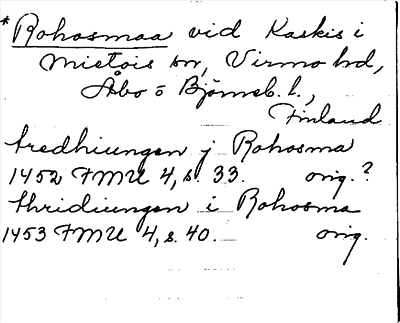 * Rohosmaa vid Kaskis i
Mietois sn, Virmo hd,
Åbo o Björneb. l.,
Finland
tredhiungen j Rohosma
1452 FMU 4, s. 33. orig.?
thridiungen i Rohosma
1453 FMU 4, s. 40. orig.